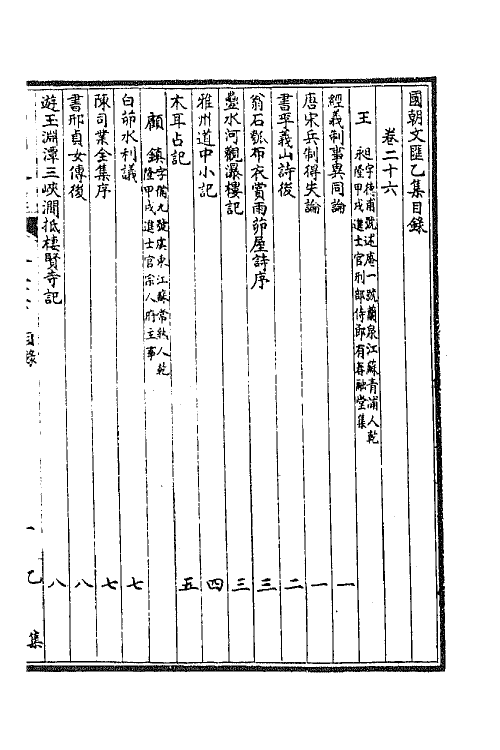 國朝文匯乙集目錄
卷二十六
王 昶字德甫號述庵一號蘭泉江蘇青浦人乾
隆甲戌進士官刑部侍郎有春融堂集
經義制事異同論 一
唐宋兵制得失論 一
書平義山詩後 二
翁石瓠布衣賞雨茆屋詩序 三
壘水河觀瀑樓記 三
雅州道中小記 四
木耳占記 五
顧 鎮字備九號虞東江蘇常熟人乾
隆甲戌進士官宗人府主事
白茆水利議 七
陳司業全集序 七
書邢貞女傳後 八
遊玉淵潭三峽澗抵棲賢寺記 八
目錄
一 乙
集